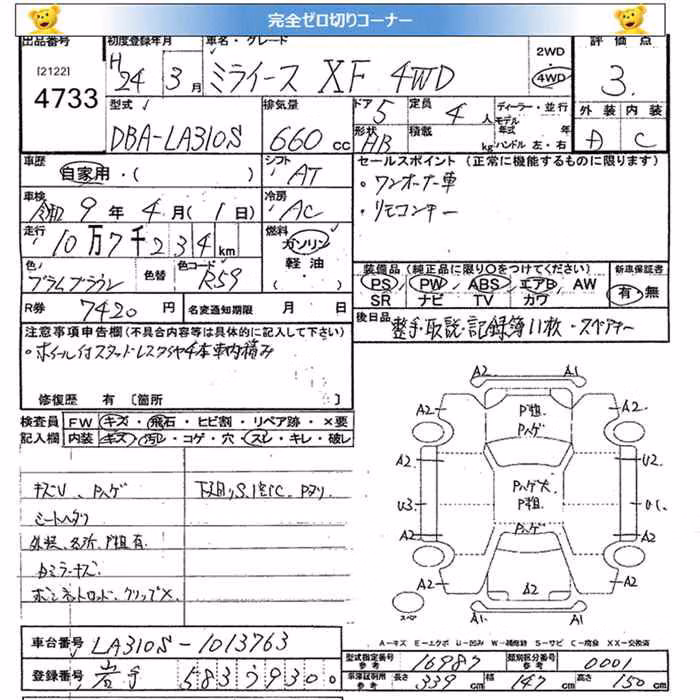 完全ゼロ切りコーナー
出品番号 初度登録年月 車名・グレード 2WD 評価点
[2122] H24 3月 ミライース XF 4WD 4WD 3.
4733 型式 排気量 ドア 5 定員 4人 ディーラー・並行 外装 内装
DBA-LA310S 660cc 形状 HB 積載 kg モデル年式 年式 ハンドル 左・右 D C
車歴 自家用・( ) シフト AT セールスポイント (正常に機能するものに限ります)
・ワンオーナー車
車検 令和9年4月(1日) 冷房 AC ・リモコンキー
走行 10万7千234km 燃料 ガソリン 軽油
色 プラムブラウン 色替 色コード R59 装備品 (純正品に限り○をつけてください) 新車保証書
PS PW ABS エアB AW 有・無
SR ナビ TV カワ
R券 7420円 名変通知期限 月 日
後日品 整手・取説・記録簿11枚・スペアキー
注意事項申告欄 (不具合内容等は具体的に記入して下さい)
・ホイール付スタッドレスタイヤ4本車内積み
修復歴 有 [箇所 ]
検査員 FW キズ・飛石・ヒビ割・リペア跡・×要
記入欄 内装 キズ・汚レ・コゲ・穴・スレ・キレ・破レ
キズU、Pハゲ 下廻りS、
シートヘタリ
Pハゲ P粗
Pハゲ大 P粗
Pハゲ
A2 A1
A2 A2
A2 U2
U3 U1
A2 A2
A2 A2 A2
A1 A1
スペア
A-キズ E-エクボ U-凹み W-補修跡 S-サビ C-腐食 XX-交換済
車台番号 LA310S-1013763
型式指定番号 参考 16987 類別区分番号 参考 0001
登録番号 岩手 583 39300
車庫証明用 参考 長さ 339cm 幅 147cm 高さ 150cm